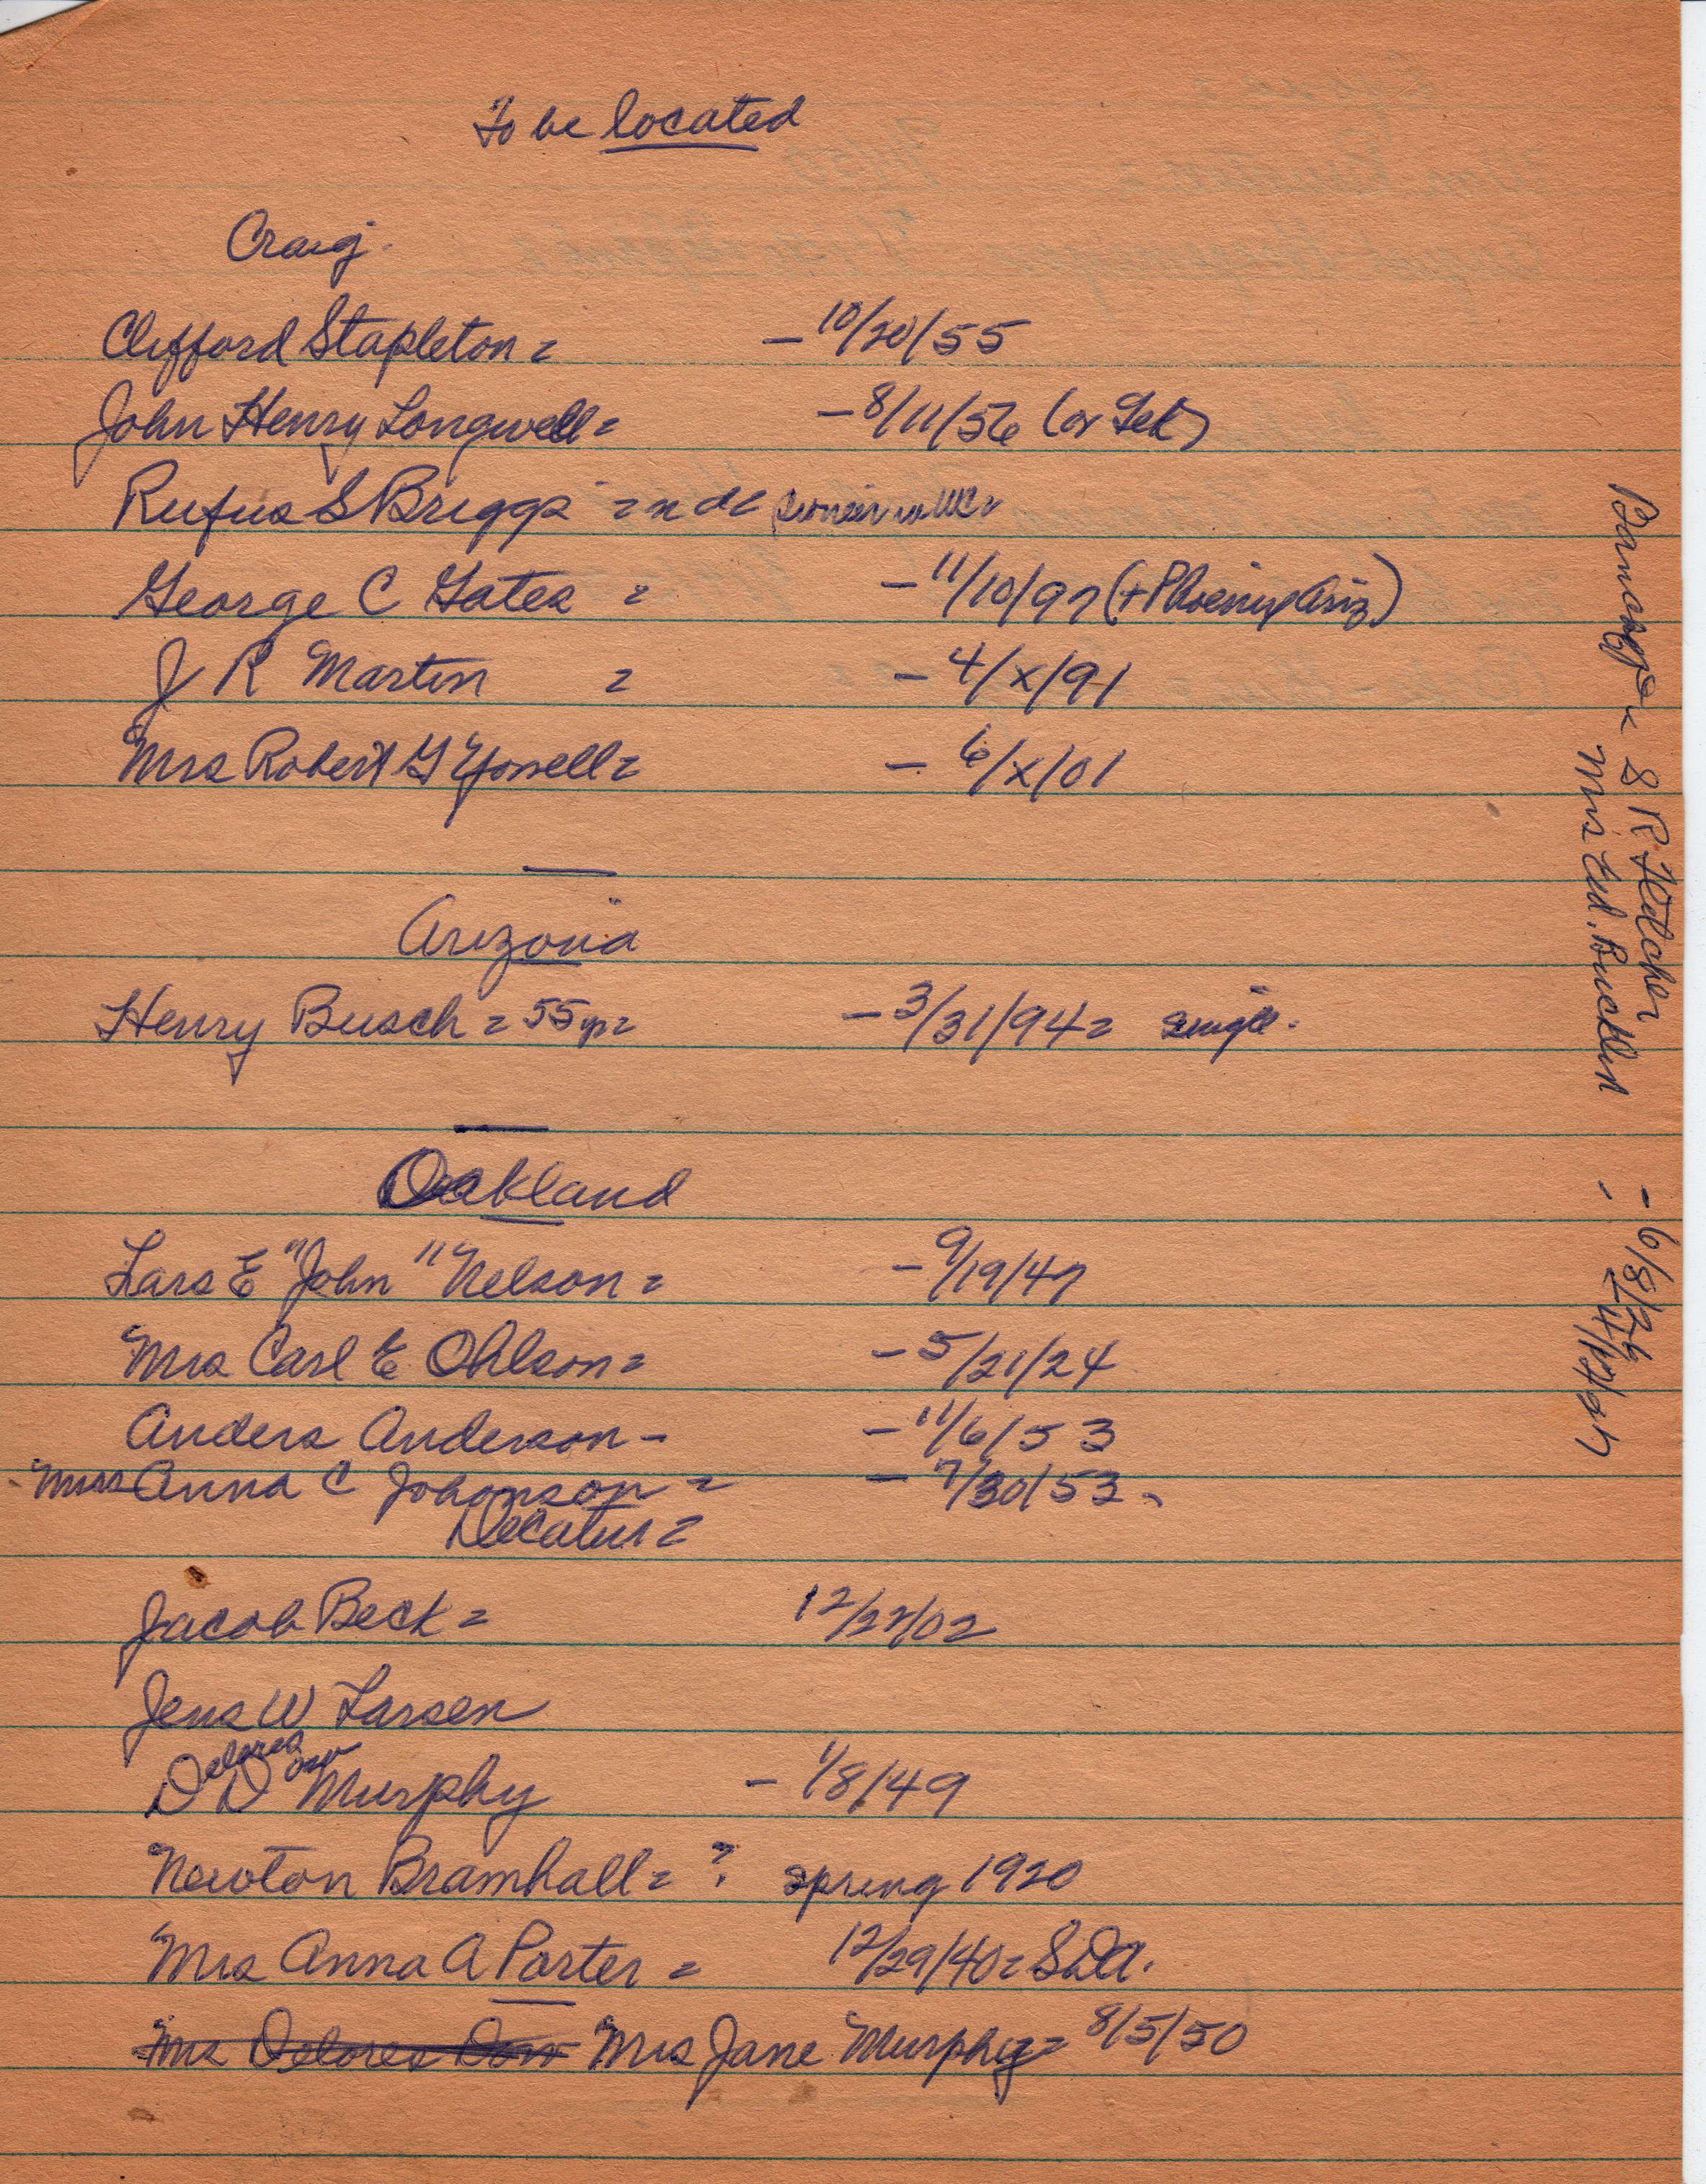 To be located
Craig.
Clifford Stapleton = - 10/20/55
John Henry Longwell = - 8/11/56 (or Tek)
Rufus S Briggs = n d=
George C Gates = - 11/10/97 (+ Phoenix Ariz)
J R Martin = - 4/x/91
Mrs Robert G Yowell = - 6/x/01
Arizona
Henry Busch = 55 yr = - 3/31/94 = single.
Oakland
Lars E "John" Nelson = - 9/19/47
Mrs Carl E Ohlson = - 5/21/24
Anders Anderson - - 11/6/53
Miss Anna C Johonson = - 7/30/53
Decatur =
Jacob Beck = 12/27/02
Jens W Larsen
Delores Dow
D D Murphy - 1/8/49
Newton Bramhall = ? spring 1920
Mrs Anna A Porter = 12/29/40 = SDA.
Mrs Delores Dow Mrs Jane Murphy = 8/5/50
S R Fletcher - 6/8/26
Mrs Ed. Bucklin